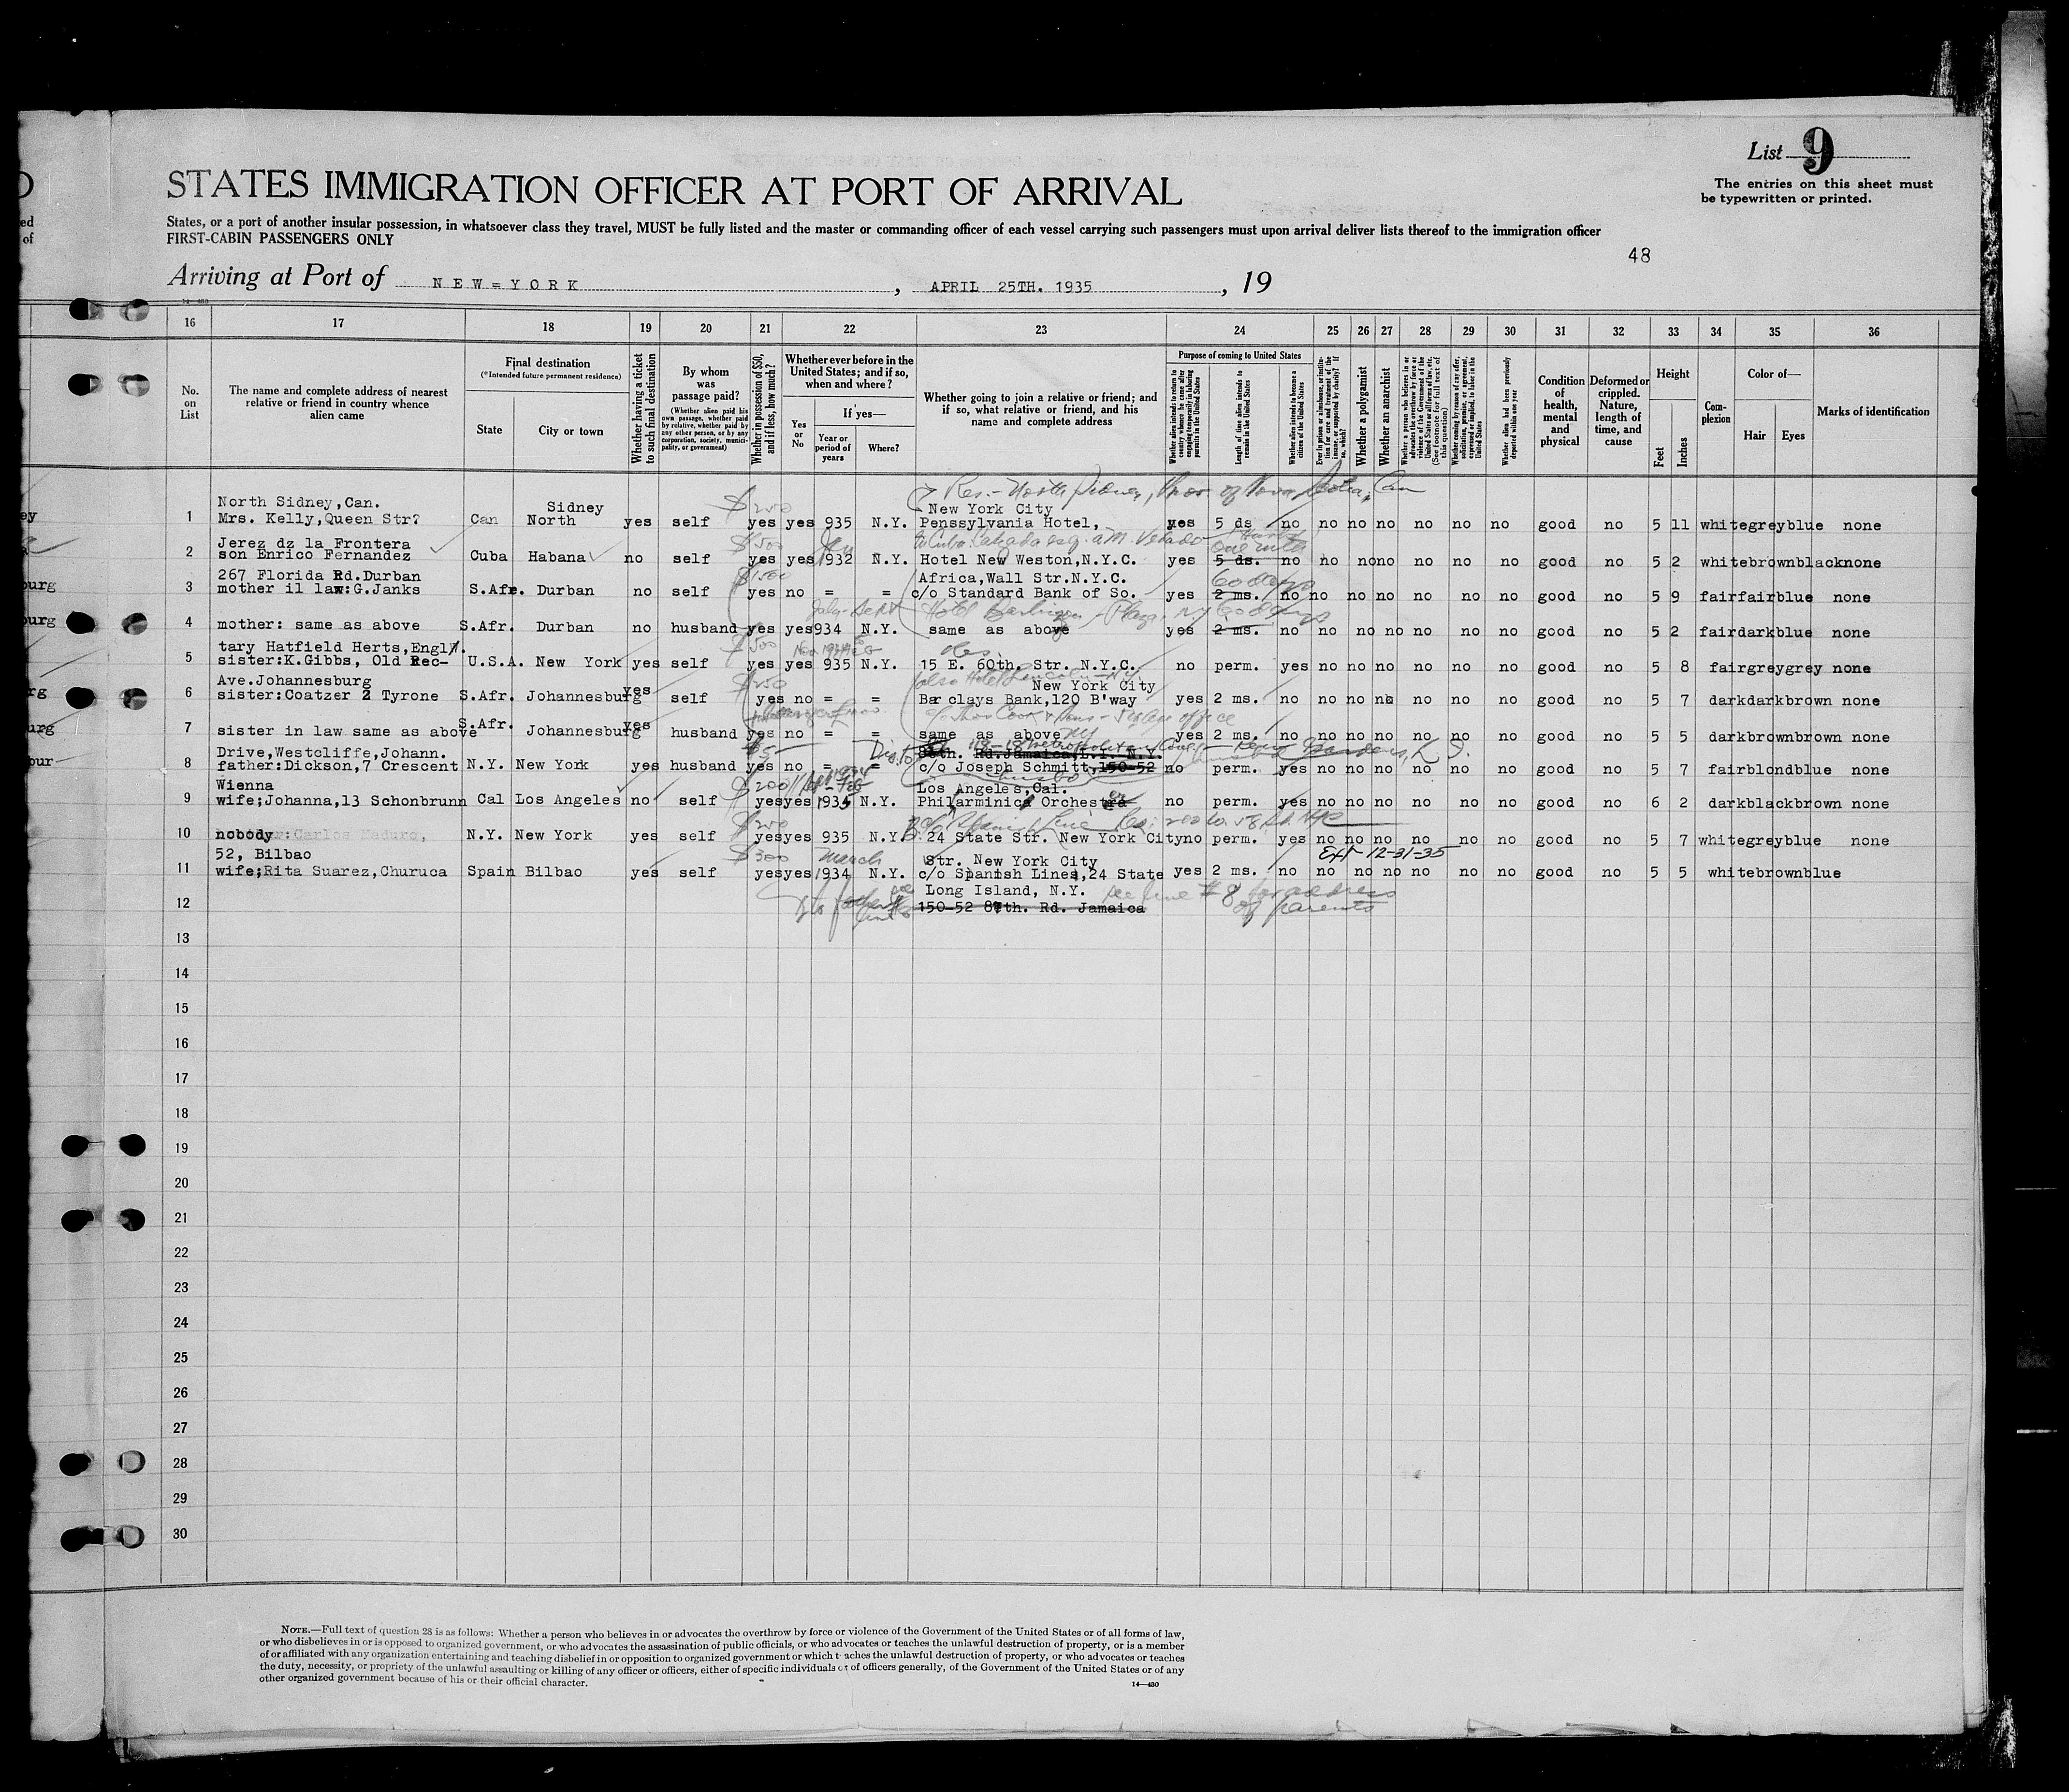 List 9
The entries on this sheet must
be typewritten or printed.
STATES IMMIGRATION OFFICER AT PORT OF ARRIVAL
States, or a port of another insular possession, in whatsoever class they travel, MUST be fully listed and the master or commanding officer of each vessel carrying such passengers must upon arrival deliver lists thereof to the immigration officer
FIRST-CABIN PASSENGERS ONLY
48
Arriving at Port of NEW=YORK, APRIL 25TH. 1935, 19
16 17 18 19 20 21 22 23 24 25 26 27 28 29 30 31 32 33 34 35 36
No. on List
The name and complete address of nearest relative or friend in country whence alien came
Final destination
(*Intended future permanent residence)
State
City or town
Whether having a ticket to such final destination
By whom was passage paid?
(Whether alien paid his own passage, whether paid by relative, whether paid by any other person, or by any corporation, society, municipality, or government)
Whether in possession of $50, and if less, how much?
Whether ever before in the United States; and if so, when and where?
Yes or No
If yes—
Year or period of years
Where?
Whether going to join a relative or friend; and if so, what relative or friend, and his name and complete address
Purpose of coming to United States
Length of time alien intends to remain in the United States
Whether alien intends to become a citizen of the United States
Whether a polygamist
Whether an anarchist
(See footnote for full text of this question)
Whether alien had been previously deported within one year
Condition of health, mental and physical
Deformed or crippled. Nature, length of time, and cause
Height
Feet
Inches
Complexion
Color of—
Hair
Eyes
Marks of identification
Res.- North Sidney, Prov. of Nova Scotia, Can
North Sidney,Can. Sidney $250 New York City
1 Mrs. Kelly,Queen Str? Can North yes self yes yes 935 N.Y. Penssylvania Hotel, yes 5 ds no no no no no no no good no 5 11 whitegreyblue none
Jerez dz la Frontera $500
2 son Enrico Fernandez Cuba Habana no self yes yes 1932 N.Y. Hotel New Weston,N.Y.C. yes 5 ds. no no nono no no no good no 5 2 whitebrownblacknone
267 Florida Rd.Durban $1500 Africa,Wall Str.N.Y.C. 60 days
3 mother il law:G.Janks S.Afr. Durban no self yes no = = c/o Standard Bank of So. yes 2 ms. no no no no no no no good no 5 9 fairfairblue none
July-Sept 60 days
4 mother: same as above S.Afr. Durban no husband yes yes934 N.Y. same as above yes 2 ms. no no no no no no no good no 5 2 fairdarkblue none
tary Hatfield Herts,Engl. $500
5 sister:K.Gibbs, Old Rec- U.S.A. New York yes self yes yes 935 N.Y. 15 E. 60th. Str. N.Y.C. no perm. yes no no no no no no good no 5 8 fairgreygrey none
Ave.Johannesburg $250 New York City
6 sister:Coatzer 2 Tyrone S.Afr. Johannesburg yes self yes no = = Barclays Bank,120 B'way yes 2 ms. no no no no no no no good no 5 7 darkdarkbrown none
c/o Thos Cook & Sons
7 sister in law same as above S.Afr. Johannesburg yes husband yes no = = same as above yes 2 ms. no no no no no no no good no 5 5 darkbrownbrown none
Drive,Westcliffe,Johann. Rd.Jamaica,L.I. N.Y.
8 father:Dickson,7 Crescent N.Y. New York yes husband yes no = = c/o Joseph Schmitt,150-52 no perm. yes no no no no no no good no 5 7 fairblondblue none
Wienna $200 Los Angeles,Cal.
9 wife;Johanna,13 Schonbrunn Cal Los Angeles no self yes yes 1935 N.Y. Philarminic Orchester no perm. yes no no no no no no good no 6 2 darkblackbrown none
$250
10 nobody: Carlos Maduro, N.Y. New York yes self yes yes 935 N.Y. 24 State Str. New York City no perm. yes no no no no no no good no 5 7 whitegreyblue none
52, Bilbao $300 March Str. New York City Ext 12-31-35
11 wife;Rita Suarez,Churuca Spain Bilbao yes self yes yes 1934 N.Y. c/o Spanish Lines,24 State yes 2 ms. no no no no no no no good no 5 5 whitebrownblue
Long Island, N.Y. see line #8 for address
12 150-52 87th. Rd. Jamaica of parents
13
14
15
16
17
18
19
20
21
22
23
24
25
26
27
28
29
30
NOTE.—Full text of question 28 is as follows: Whether a person who believes in or advocates the overthrow by force or violence of the Government of the United States or of all forms of law,
or who disbelieves in or is opposed to organized government, or who advocates the assassination of public officials, or who advocates or teaches the unlawful destruction of property, or is a member
of or affiliated with any organization entertaining and teaching disbelief in or opposition to organized government or which teaches the unlawful destruction of property, or who advocates or teaches
the duty, necessity, or propriety of the unlawful assaulting or killing of any officer or officers, either of specific individuals or of officers generally, of the Government of the United States or of any
other organized government because of his or their official character.
14—430